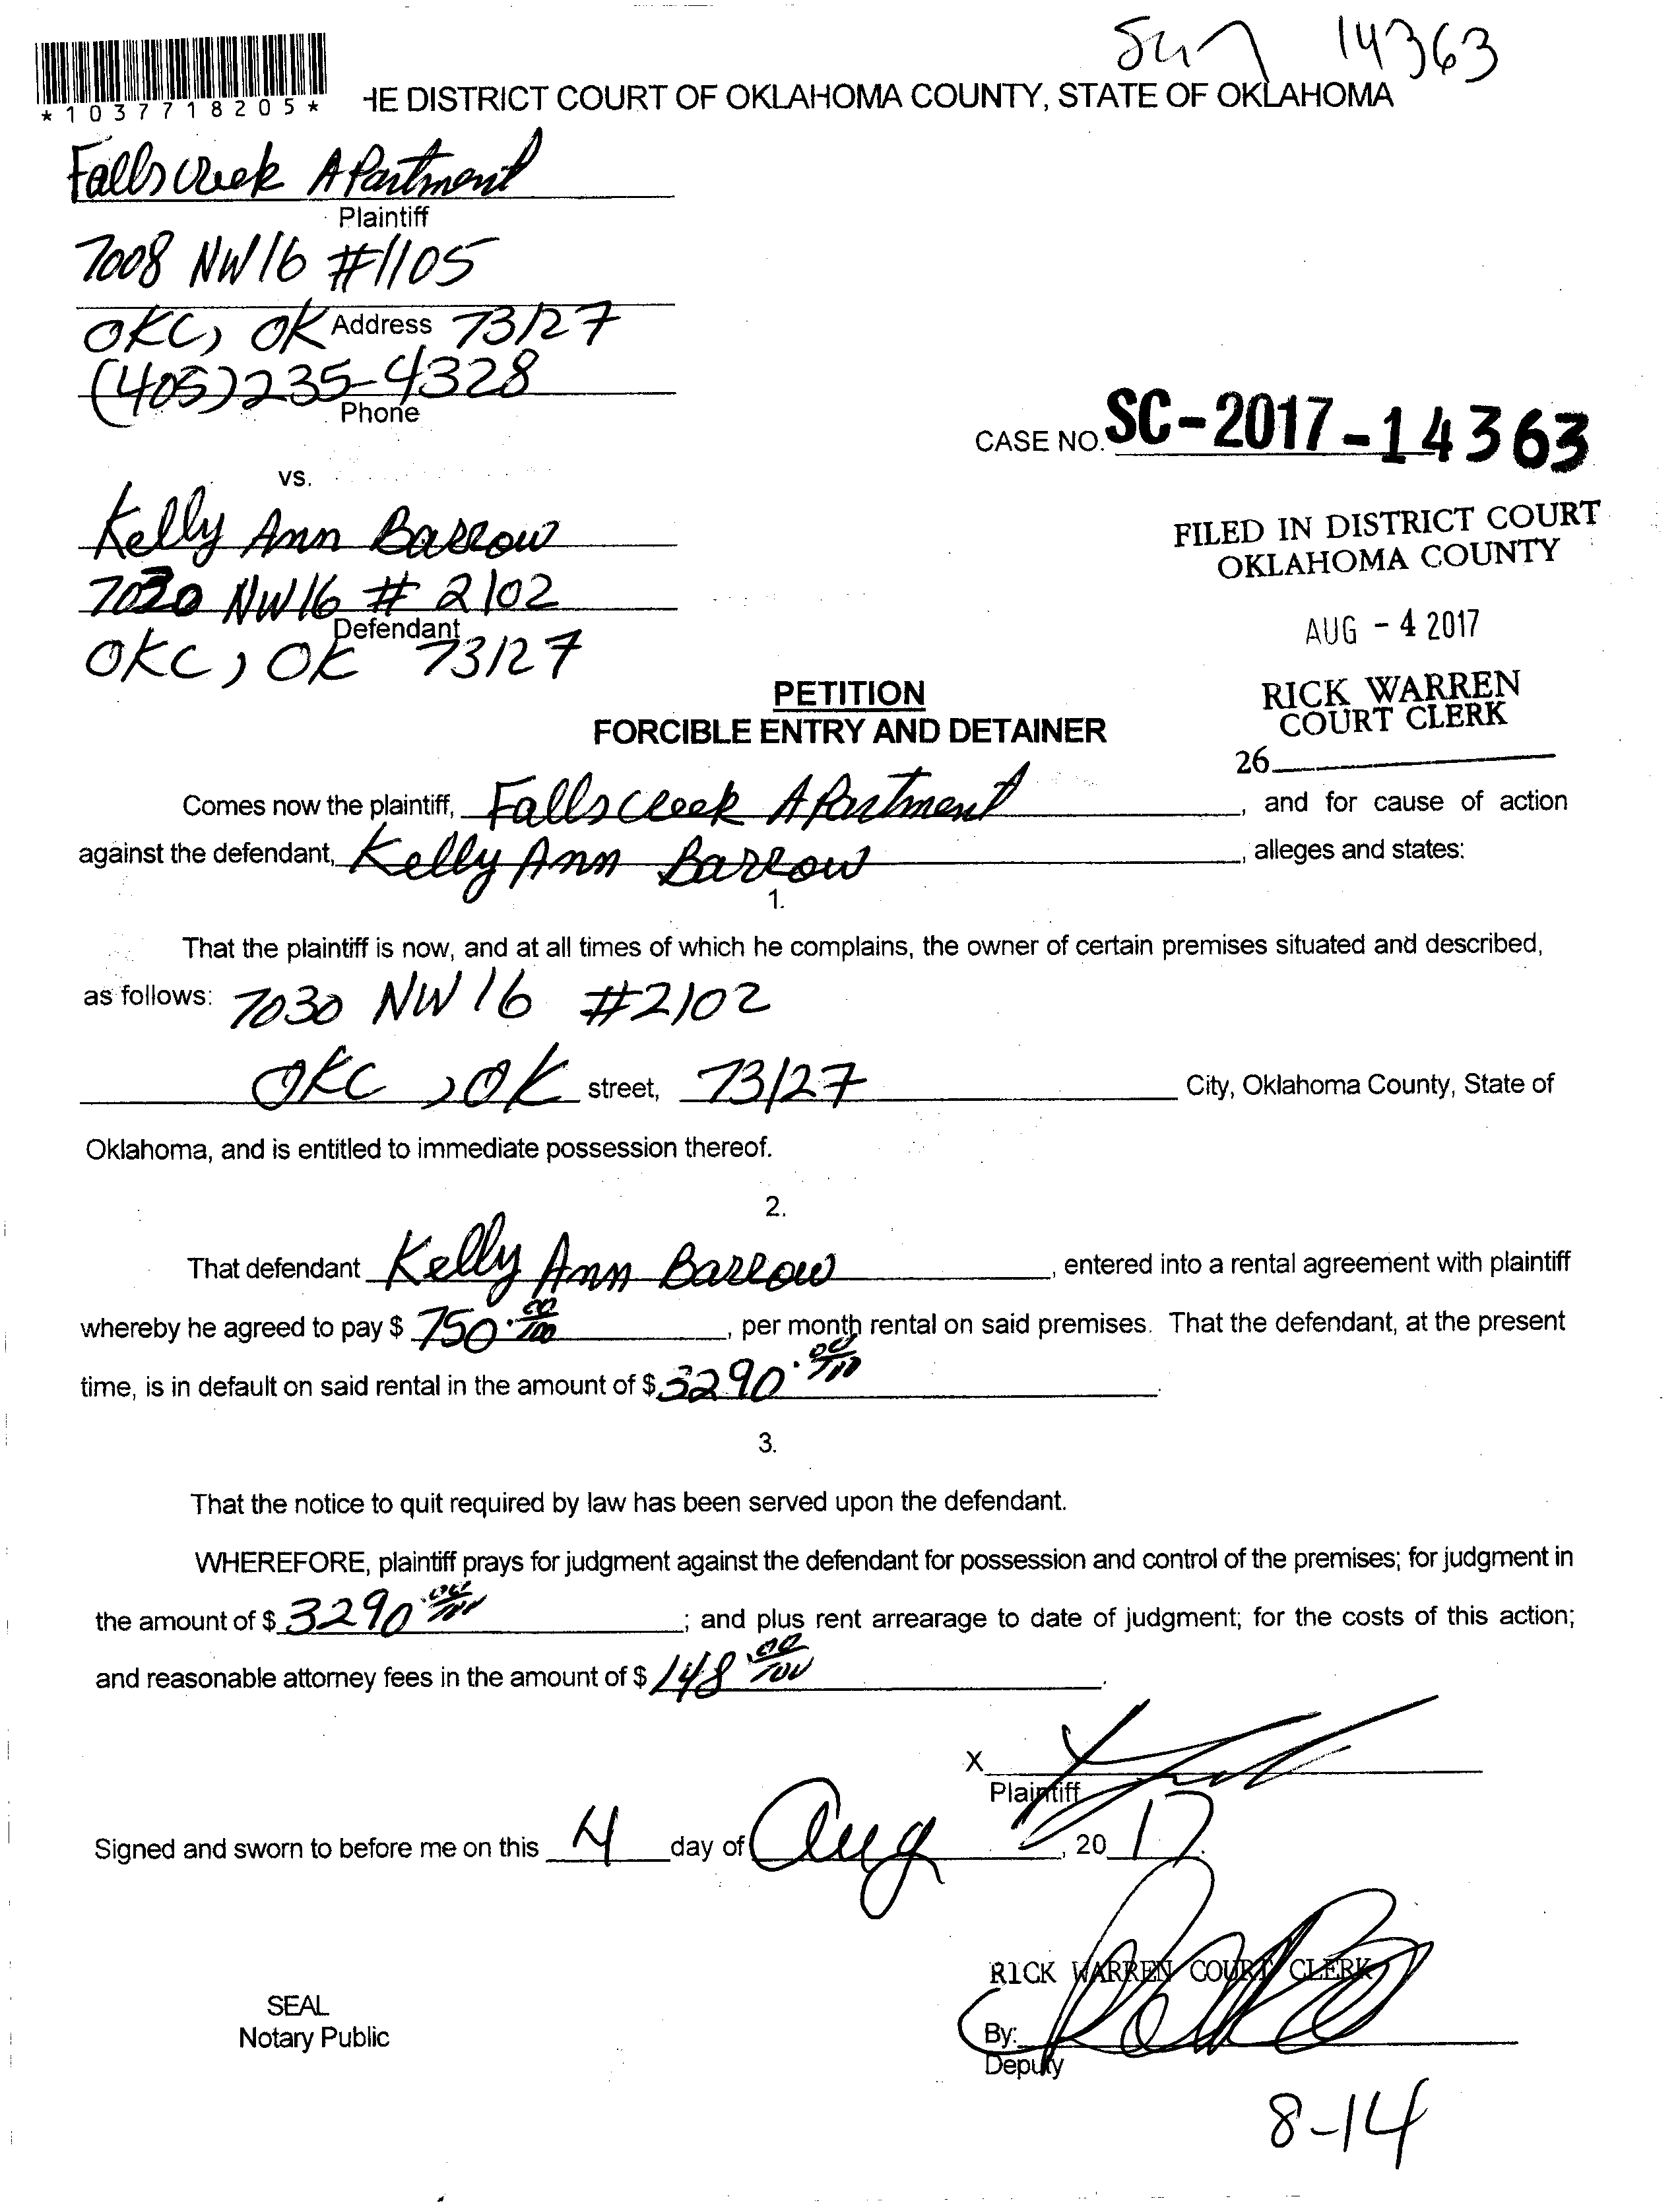 14363
*1037718205*
HE DISTRICT COURT OF OKLAHOMA COUNTY, STATE OF OKLAHOMA
Fallscreek Apartment
Plaintiff
7008 NW 16 #1105
OKC, OK Address 73127
(405) 235-4328
Phone
CASE NO. SC-2017-14363
vs.
Kelly Ann Barrow
7030 NW 16 # 2102
Defendant
OKC, OK 73127
FILED IN DISTRICT COURT
OKLAHOMA COUNTY
AUG - 4 2017
RICK WARREN
COURT CLERK
26
PETITION
FORCIBLE ENTRY AND DETAINER
Comes now the plaintiff, Fallscreek Apartment, and for cause of action
against the defendant, Kelly Ann Barrow, alleges and states:
1.
That the plaintiff is now, and at all times of which he complains, the owner of certain premises situated and described,
as follows: 7030 NW 16 #2102
OKC, OK street, 73127 City, Oklahoma County, State of
Oklahoma, and is entitled to immediate possession thereof.
2.
That defendant Kelly Ann Barrow, entered into a rental agreement with plaintiff
whereby he agreed to pay $ 750.00/100, per month rental on said premises. That the defendant, at the present
time, is in default on said rental in the amount of $ 3290.00/100.
3.
That the notice to quit required by law has been served upon the defendant.
WHEREFORE, plaintiff prays for judgment against the defendant for possession and control of the premises; for judgment in
the amount of $ 3290.00/100; and plus rent arrearage to date of judgment; for the costs of this action;
and reasonable attorney fees in the amount of $ 148.00/100.
X
Plaintiff
Signed and sworn to before me on this 4 day of Aug, 2017.
RICK WARREN COURT CLERK
SEAL
Notary Public
By:
Deputy
8-14